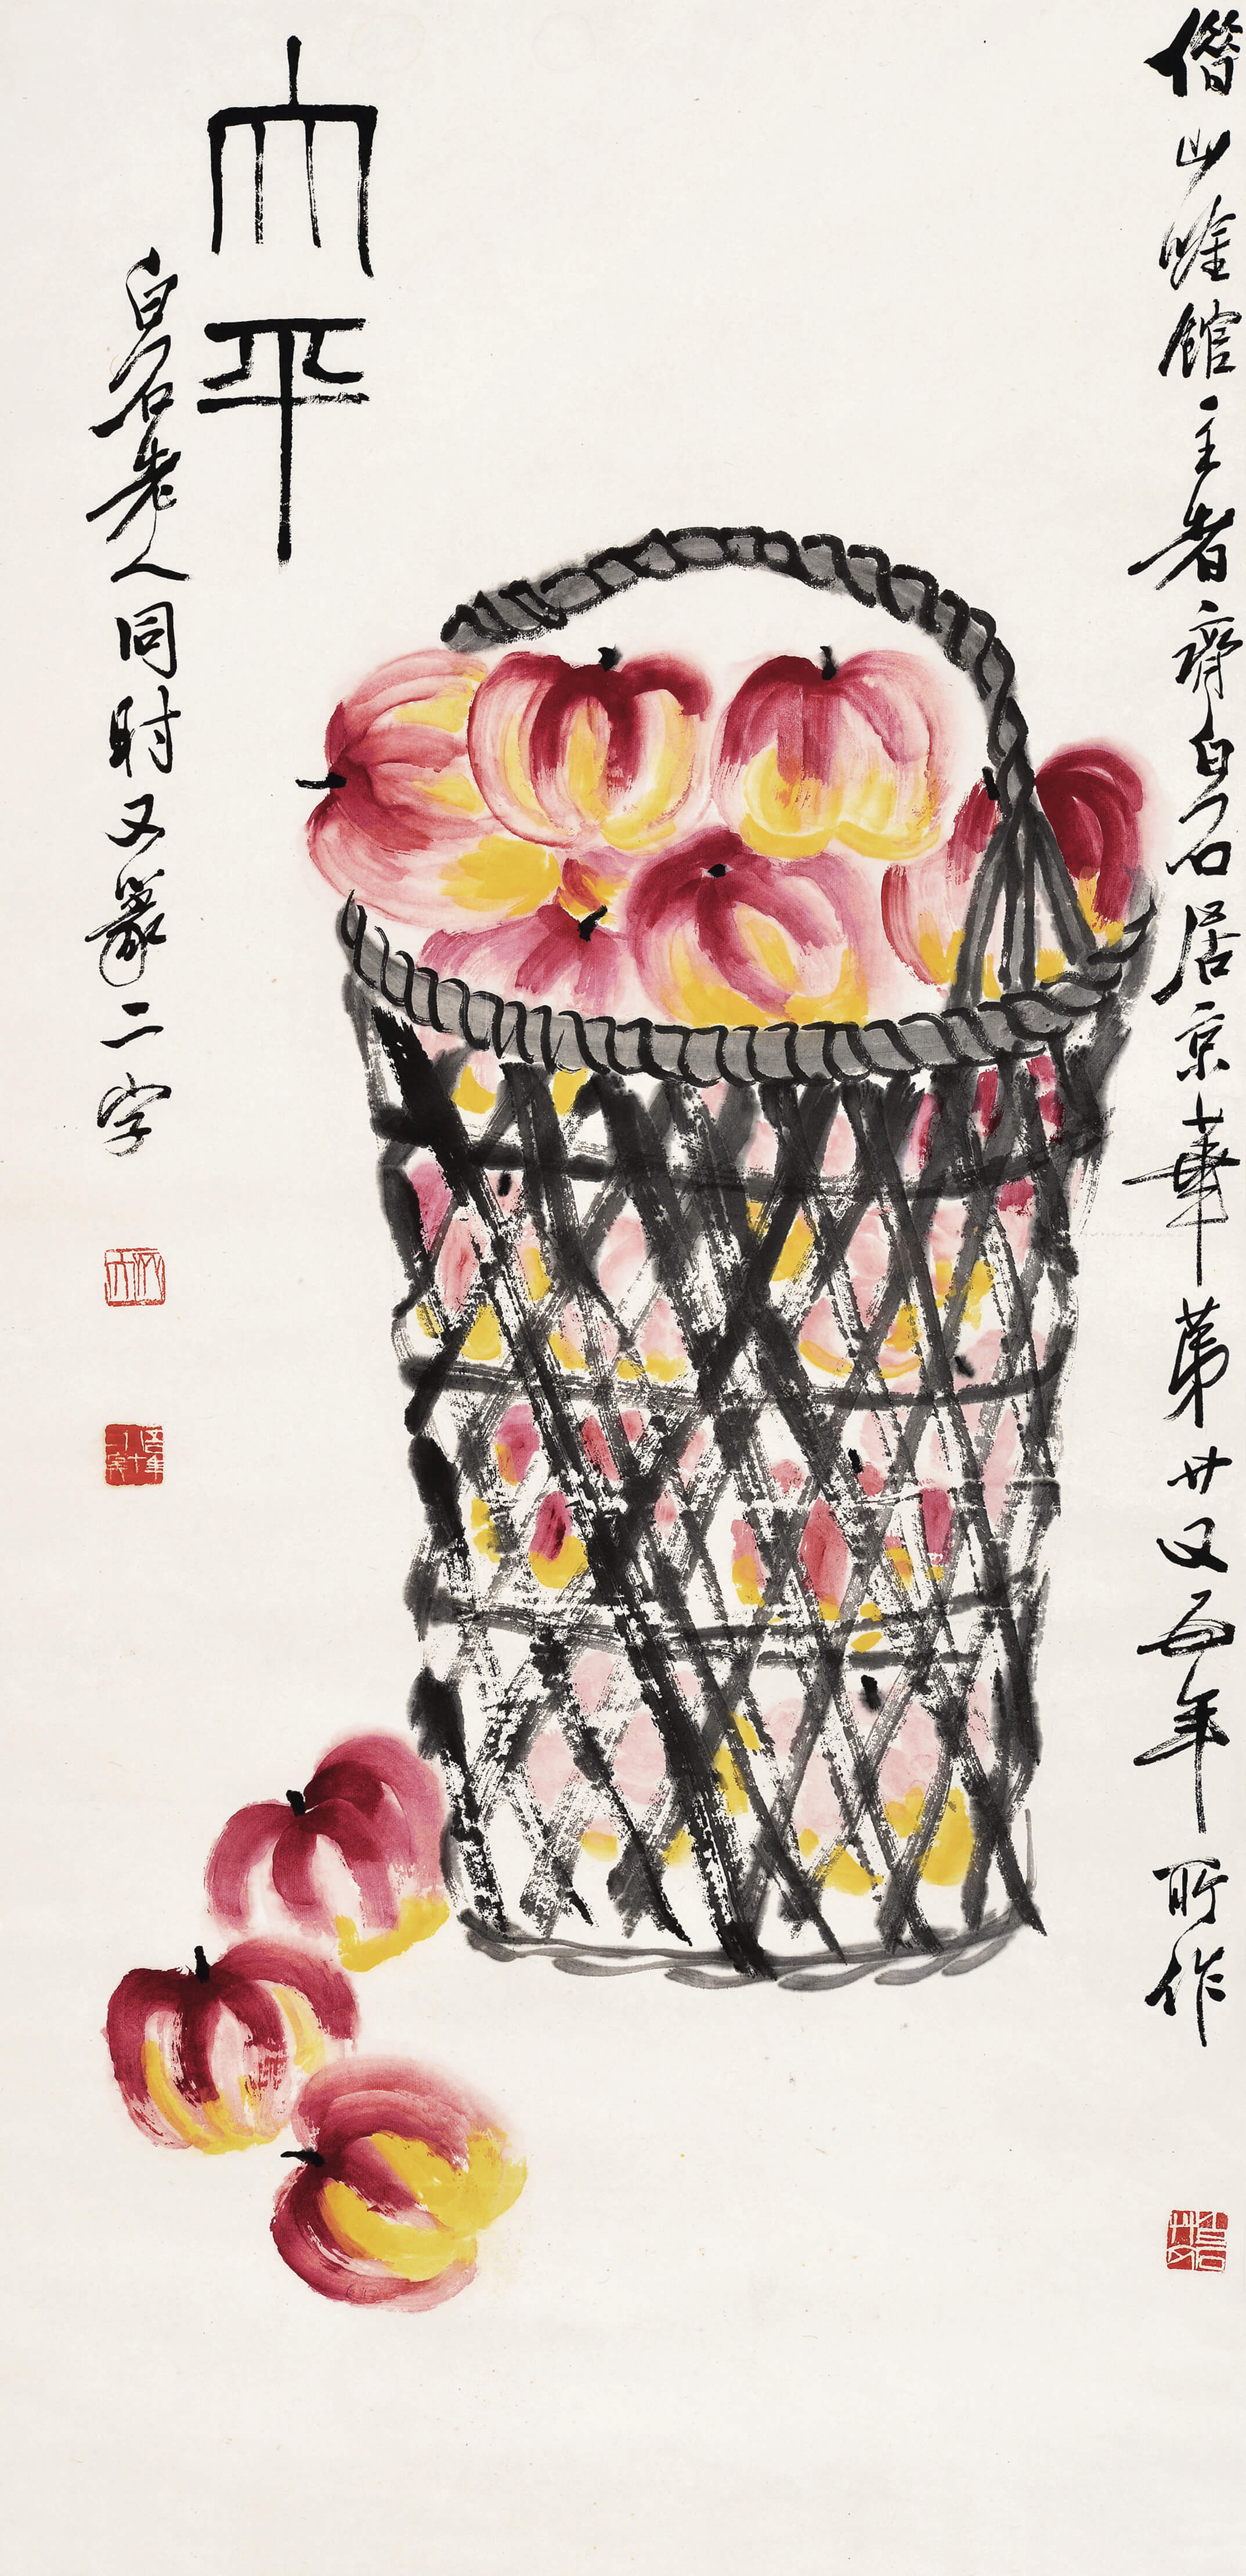 借山唫館主者齊白石居京華第廿又五年所作
大平
白石老人同時又篆二字
吾年八十二矣